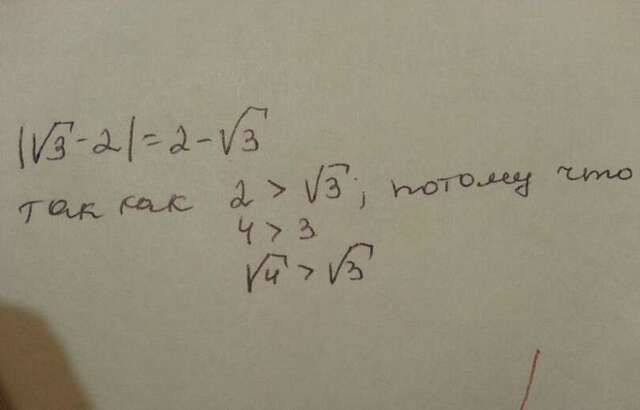 |√3 - 2| = 2 - √3
так как 2 > √3; потому что
4 > 3
√4 > √3